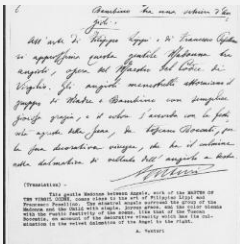 Bambino tra una schiera d'an
gioli.
All'arte di Filippo Lippi e di Francesco Pesellino
si approssima questa gentile Madonna tra
angioli, opera del Maestro del Codice di
Virgilio. Gli angioli menestrelli attorniano il
gruppo di Madre e Bambino con semplice
gioiosa grazia, e il colore s'accorda con la festi
vità agreste della scena, da toscano Boccati, per
la sua decorativa vivezza, che ha il culmine
nella dalmatica di velluto dell'angiolo a destra
A Venturi
(Translation)
This gentle Madonna between Angels, work of the MASTER OF
THE VIRGIL CODEX, comes close to the art of Filippino Lippi and
Francesco Pesellino. The minstrel angels surround the group of the
Madonna and the Child with simple, joyous grace, and the color blends
with the rustic festivity of the scene, like that of the Tuscan
Boccatis, on account of the decorative vivacity which has its culmination
in the velvet dalmatica of the Angel to the right.
A. Venturi